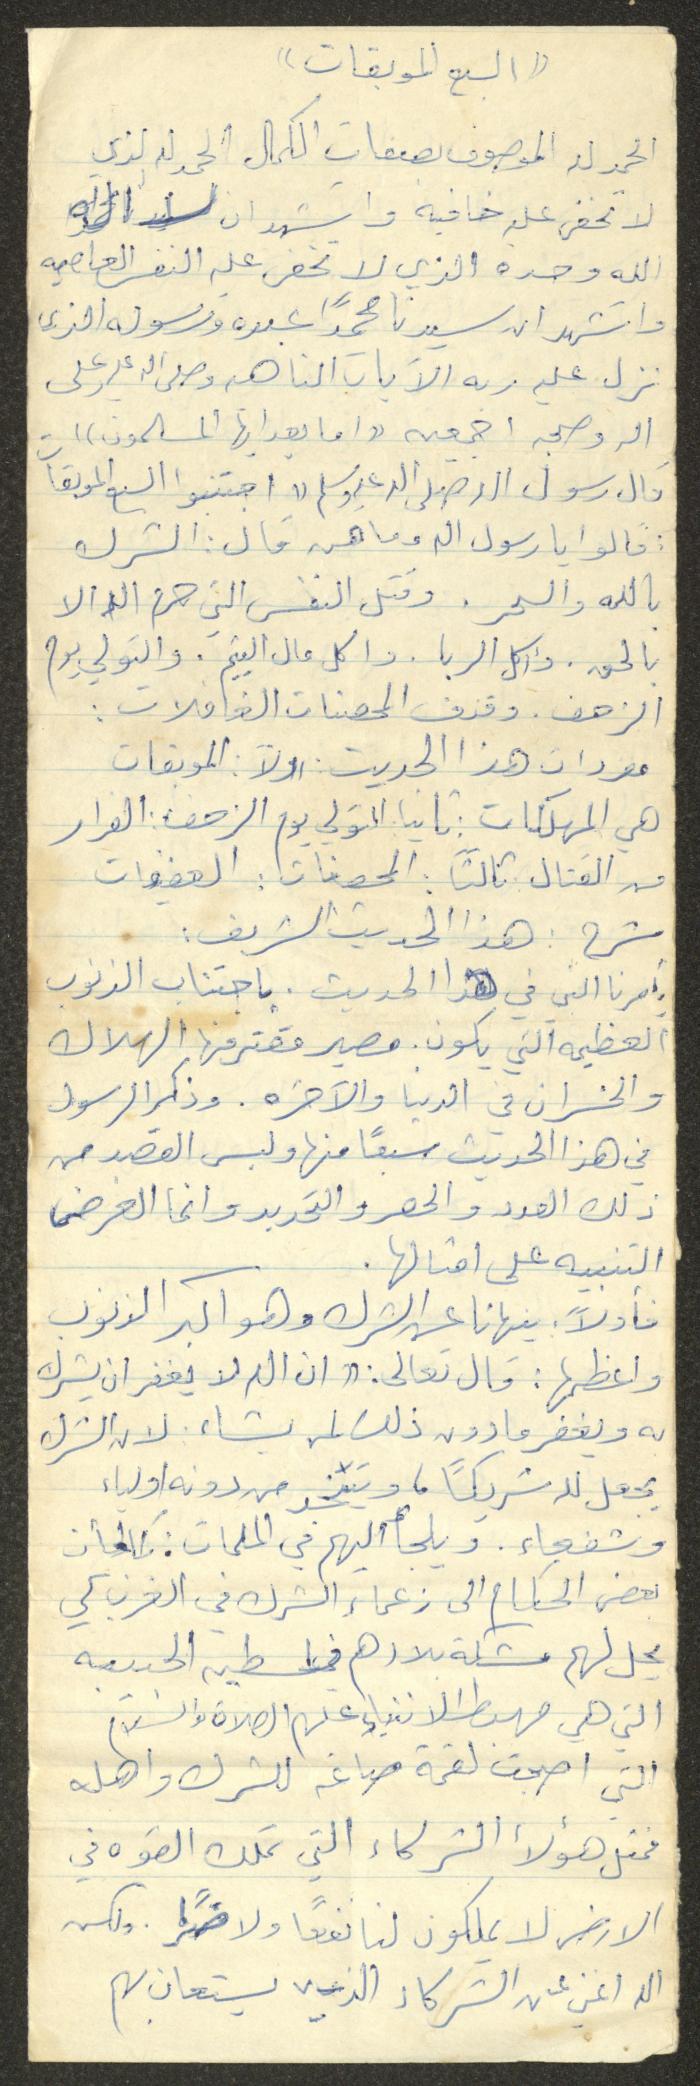 ((السبع الموبقات))
الحمد لله الموصوف بصفات الكمال الحمد لله الذي
لا تخفى عليه خافيه واشهد ان لا اله الا
الله وحده الذي لا تخفى عليه النفس العاصيه
واشهد ان سيدنا محمدًا عبده ورسوله الذي
نزل عليه ربه الآيات الناهيه وصلى الله عليه وعلى
اله وصحبه اجمعين ((اما بعد ايها المسلمون))
قال رسول الله صلى الله عليه وسلم ((اجتنبوا السبع الموبقات
: قالوا يا رسول الله وما هن قال: الشرك
بالله والسحر . وقتل النفس التي حرم الله الا
بالحق . وأكل الربا . واكل مال اليتيم . والتولي يوم
الزحف . وقذف المحصنات الغافلات :
مفردات هذا الحديث : اولاً : الموبقات
هي المهلكات : ثانيا التولي يوم الزحف : الفرار
من القتال ثالثًا : المحصنات : العفيفات
شرح : هذا الحديث الشريف :
يأمرنا النبي في هذا الحديث . باجتناب الذنوب
العظيمه التي يكون . مصير مقترفها الهلاك
والخسران في الدنيا والآخره . وذكر الرسول
في هذا الحديث سبعًا منها وليس القصد من
ذلك العدد والحصر والتحديد وانما الغرض
التنبيه على امثالها .
فأولاً . ينهانا عن الشرك وهو اكبر الذنوب
واعظمها : قال تعالى : ((ان الله لا يغفر ان يشرك
به ويغفر ما دون ذلك لمن يشاء : لان الشرك
يجعل لله شريكًا ، ويتخذ من دونه اولياء
وشفعاء . ويلجأ اليهم في الملمات :
بعض الحكام الى زعماء الشرك في الغرب كي
يحل لهم مشكلة بلادهم فلسطين الحبيبه
التي هي مهبط الانبياء عليهم الصلاة والسلام
التي اصبحت لقمة صائغه للشرك واهله
فمثل هؤلاء الشركاء التي تملك القوه في
الارض لا يملكون لنا نفعًا ولا ضرًا . ولكن
الله اغنى عن الشركاء الذين يستعان بهم